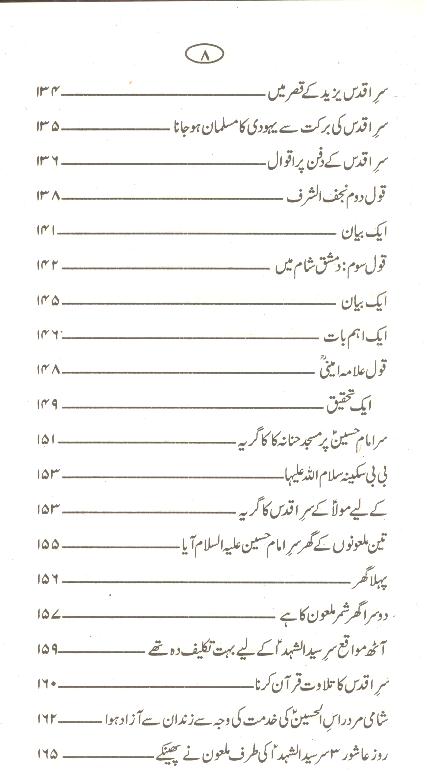 ۸
سرِ اقدس یزید کے قصر میں ۱۳۴
سرِ اقدس کی برکت سے یہودی کا مسلمان ہو جانا ۱۳۵
سرِ اقدس کے دفن پر اقوال ۱۳۶
قول دوم نجف الشرف ۱۳۸
ایک بیان ۱۴۱
قول سوم: دمشق شام میں ۱۴۲
ایک بیان ۱۴۵
ایک اہم بات ۱۴۶
قول علامہ امینیؒ ۱۴۸
ایک تحقیق ۱۴۹
سر امام حسینؑ پر مسجد حنانہ کا کا گریہ ۱۵۱
بی بی سکینہ سلام اللہ علیہا ۱۵۳
کے لیے مولاؑ کے سرِ اقدس کا گریہ ۱۵۳
تین ملعونوں کے گھر سرِ امام حسین علیہ السلام آیا ۱۵۵
پہلا گھر ۱۵۶
دوسرا گھر شمر ملعون کا ہے ۱۵۷
آٹھ مواقع سرِ سید الشہداؑ کے لیے بہت تکلیف دہ تھے ۱۵۹
سرِ اقدس کا تلاوت قرآن کرنا ۱۶۰
شامی مرد راس الحسینؑ کی خدمت کی وجہ سے زندان سے آزاد ہوا ۱۶۲
روز عاشور ۳ سر سید الشہداؑ کی طرف ملعون نے پھینکے ۱۶۵